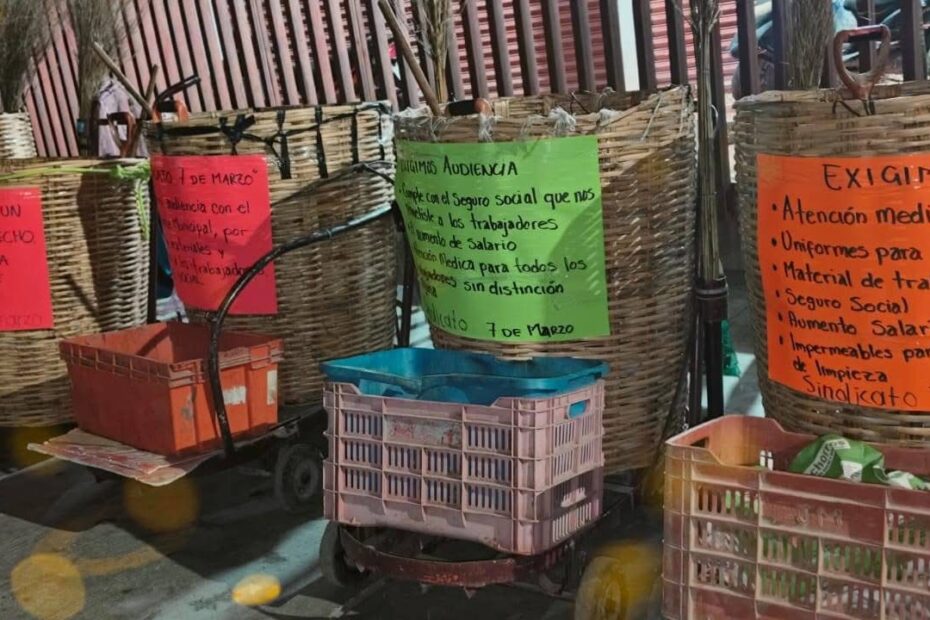 UN
ECHO
A
ARZO
7 DE MARZO"
audiencia con el
Municipal, por
materiales y
los trabajadores
SOCIAL
EXIGIMOS AUDIENCIA
Cumple con el Seguro social que nos
a los trabajadores
El aumento de Salario
Atención Medica para todos los
sin distinción
Sindicato 7 DE MARZO
EXIGIM
• Atención medi
• Uniformes para
• Material de tra
• Seguro Social
• Aumento Salar
• Impermeables par
de limpieza
Sindicato